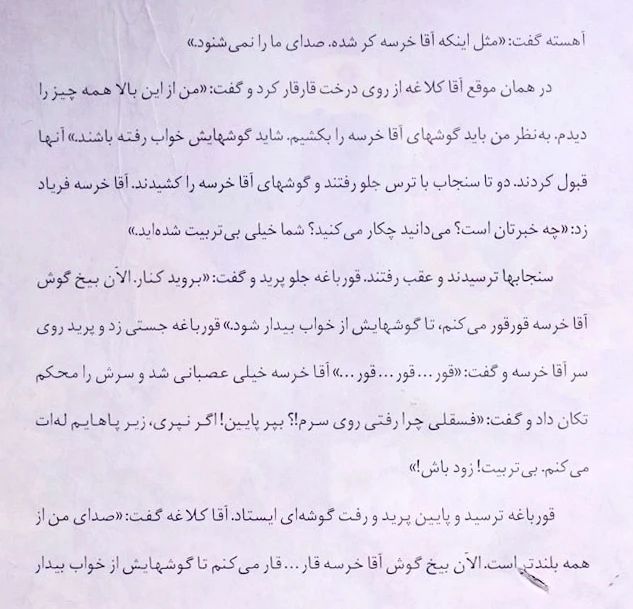 آهسته گفت: «مثل اینکه آقا خرسه کر شده. صدای ما را نمی‌شنود.»
در همان موقع آقا کلاغه از روی درخت قارقار کرد و گفت: «من از این بالا همه چیز را
دیدم. به‌نظر من باید گوشهای آقا خرسه را بکشیم. شاید گوشهایش خواب رفته باشند.» آنها
قبول کردند. دو تا سنجاب با ترس جلو رفتند و گوشهای آقا خرسه را کشیدند. آقا خرسه فریاد
زد: «چه خبرتان است؟ می‌دانید چکار می‌کنید؟ شما خیلی بی‌تربیت شده‌اید.»
سنجابها ترسیدند و عقب رفتند. قورباغه جلو پرید و گفت: «بروید کنار. الآن بیخ گوش
آقا خرسه قورقور می‌کنم، تا گوشهایش از خواب بیدار شود.» قورباغه جستی زد و پرید روی
سر آقا خرسه و گفت: «قور... قور... قور...» آقا خرسه خیلی عصبانی شد و سرش را محکم
تکان داد و گفت: «فسقلی چرا رفتی روی سرم!؟ بپر پایین! اگر نپری، زیر پاهایم له‌ات
می‌کنم. بی‌تربیت! زود باش!»
قورباغه ترسید و پایین پرید و رفت گوشه‌ای ایستاد. آقا کلاغه گفت: «صدای من از
همه بلندتر است. الآن بیخ گوش آقا خرسه قار... قار می‌کنم تا گوشهایش از خواب بیدار